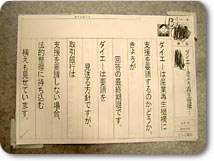 ダイエーは産業再生機構に
支援を要請するのかどうか、
きょうが
回答の最終期限です。
ダイエーは要請を
見送る方針ですが、
取引銀行は
支援を要請しない場合、
法的整理に持ち込む
構えも見せています。